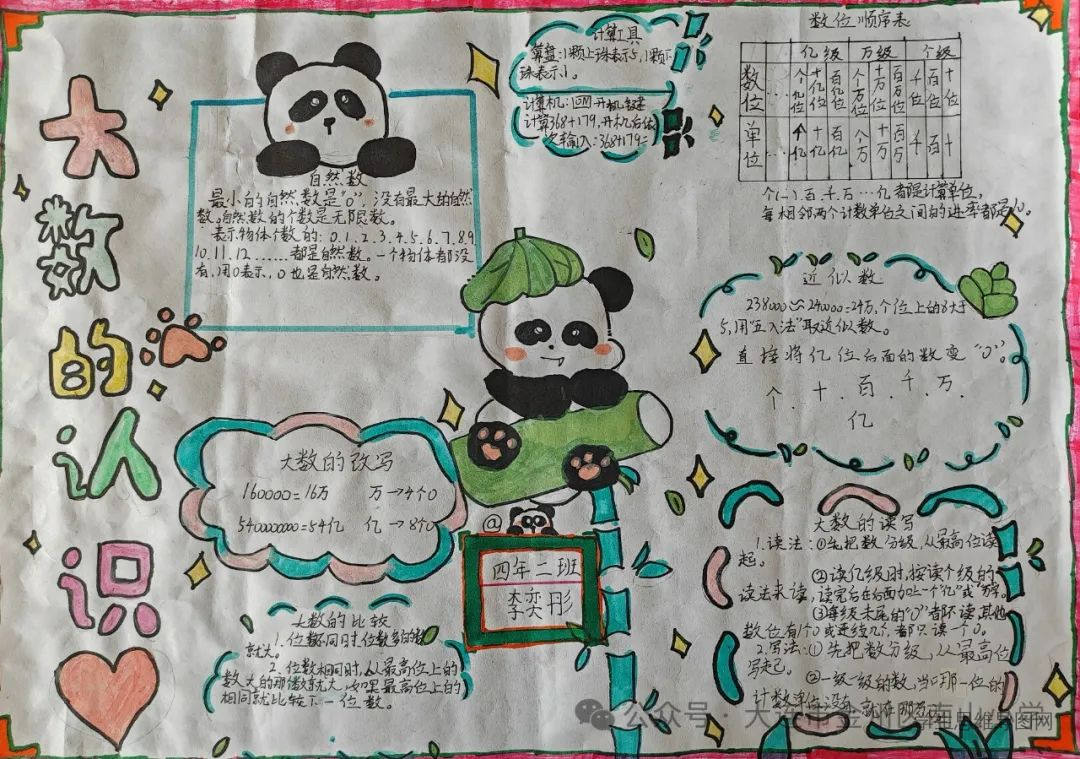 大数的认识
自然数
最小的自然数是“0”，没有最大的自然
数。自然数的个数是无限数。
表示物体个数的：0.1.2.3.4.5.6.7.8.9
10.11.12……都是自然数。一个物体都没
有，用0表示，0也是自然数。
计算工具
算盘：1颗上珠表示5，1颗下
珠表示1。
计算机：开机键
计算368+179，开机后依
次输入：368+179=
数位顺序表
亿级 万级 个级
数位 … 个亿位 十亿位 百亿位 个万位 十万位 百万位 千位 百位 十位
单位 … 个亿 十亿 百亿 个万 十万 百万 千 百 十
个(一)百.千.万…亿都是计算单位，
每相邻两个计数单位之间的进率都是10。
近似数
238000≈240000=24万，个位上的8大于
5，用“五入法”取近似数。
直接将亿位后面的数变“0”。
个.十.百.千.万.
亿
大数的改写
160000=16万 万→4个0
5400000000=54亿 亿→8个0
@
四年二班
李奕彤
大数的比较
1.位数不同时，位数多的数
就大。
2.位数相同时，从最高位上的
数大的那个数就大，如果最高位上的
相同就比较下一位数。
大数的读写
1.读法：①先把数分级，从最高位读
起。
②读亿级时，按读个级的
读法来读，读完后在后面加上一个“亿”或“万”字。
③每级末尾的“0”都不读，其他
数位有1个0或连续几个，都只读一个0。
2.写法：①先把数分级，从最高位
写起。
②一级一级的数，当哪一位的
计数单位没有，就在那
公众号·大连市金州区南山小学